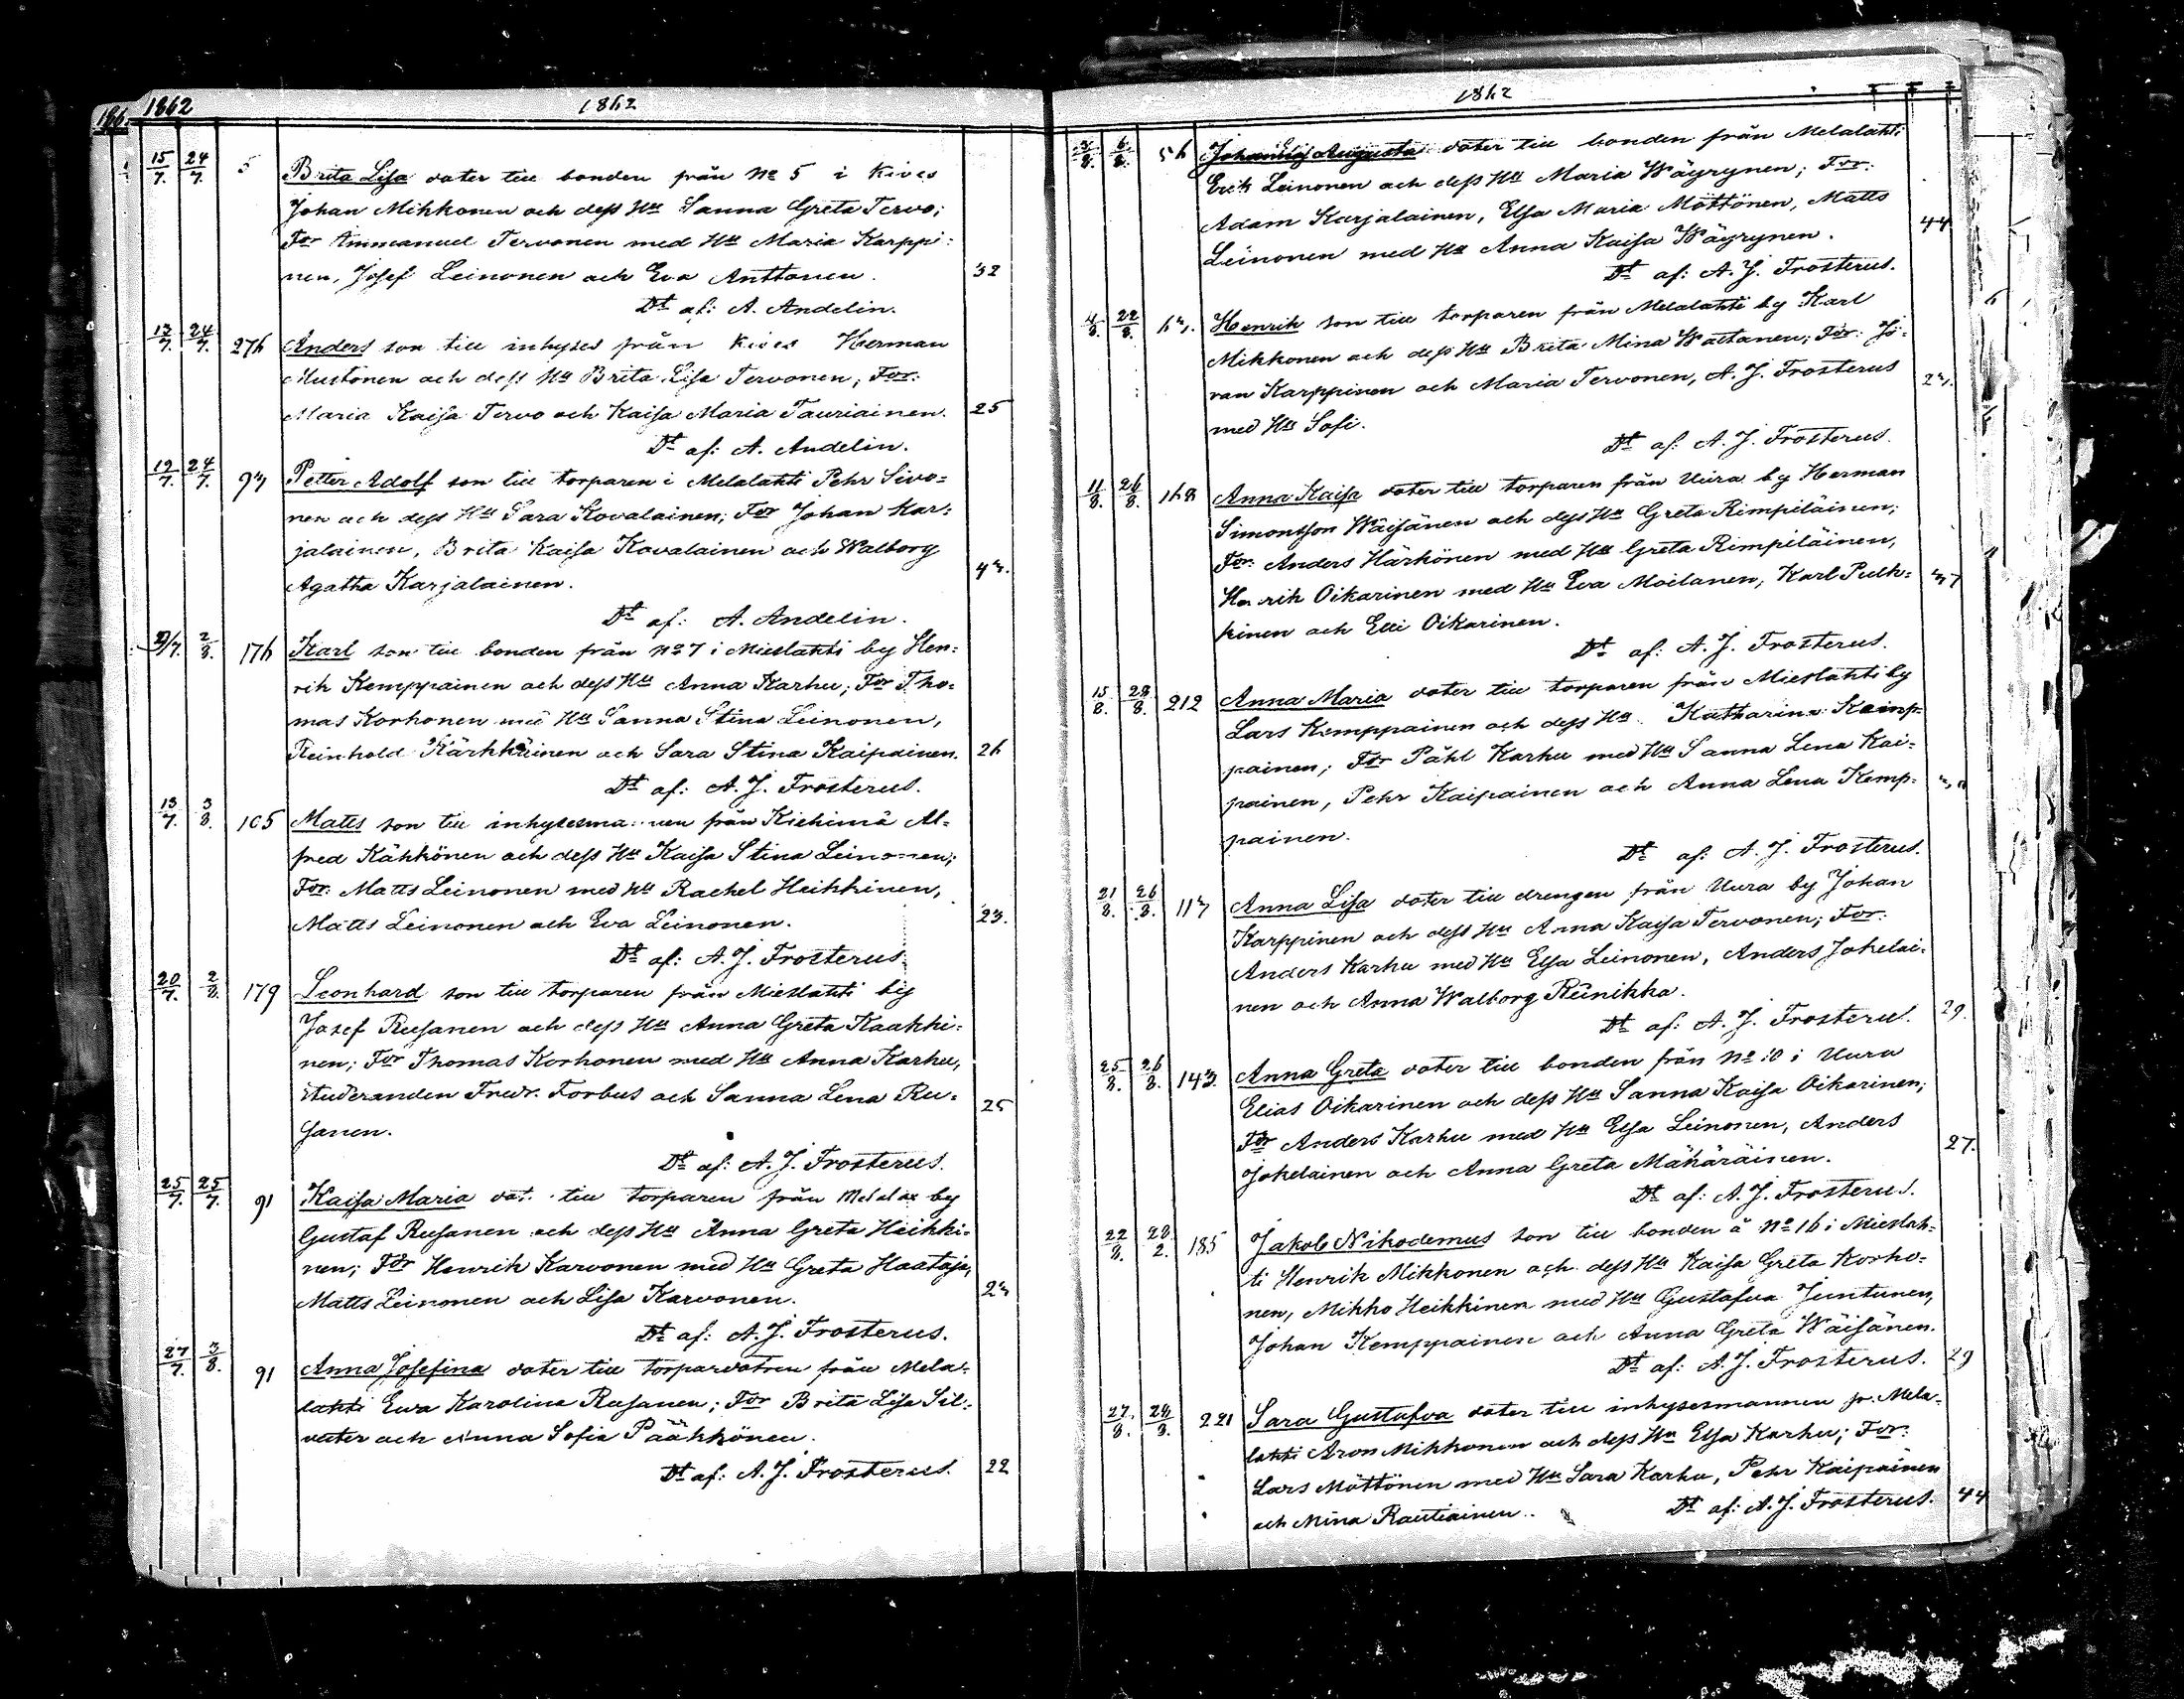 186. 1862 1862
15/7. 24/7. 5 Brita Lisa doter till bonden från No 5 i Kives
Johan Mikkonen och dess Hu Sanna Greta Tervo;
For Immanuel Tervonen med Hu Maria Karppi-
nen, Josef Leinonen och Eva Anttonen. 32
Dt af: A. Andelin.
24/7. 276 Anders son till inhyses från Kives Herman
Mustonen och dess Hu Brita Lisa Tervonen; For:
Maria Kaisa Tervo och Kaisa Maria Tauriainen. 25
Dt af: A. Andelin.
19/7. 24/7. Petter Adolf son till torparen i Melalahti Pehr Sivo-
nen och dess Hu Sara Kovalainen; For Johan Kar-
jalainen, Brita Kaisa Kovalainen och Walborg
Agatha Karjalainen.
Dt af: A. Andelin.
2/8. 176 Karl son till bonden från No 7 i Mieslahti by Hen-
rik Kemppainen och dess Hu Anna Karhu; For Tho-
mas Korhonen med Hu Sanna Stina Leinonen,
Reinhold Kärkkäinen och Sara Stina Kaipainen. 26
Dt af: A. J. Frosterus.
13/7. 3/8. 105 Matts son till inhysesmannen från Kiehimä Al-
fred Kähkönen och dess Hu Kaisa Stina Leinonen;
For: Matts Leinonen med Hu Rachel Heikkinen,
Matts Leinonen och Eva Leinonen. 23.
Dt af: A. J. Frosterus.
20/7. 2/8. 179 Leonhard son till torparen från Mieslahti by
Josef Rusanen och dess Hu Anna Greta Kaakki-
nen; For Thomas Korhonen med Hu Anna Karhu,
studeranden Fredr. Forbus och Sanna Lena Ru-
sanen. 25
Dt af: A. J. Frosterus.
25/7. 25/7. 91 Kaisa Maria dot. till torparen från Melalax by
Gustaf Rusanen och dess Hu Anna Greta Heikki-
nen; For Henrik Karvonen med Hu Greta Haataja,
Matts Leinonen och Lisa Karvonen.
Dt af: A. J. Frosterus.
27/7. 3/8. 91 Anna Josefina doter till torparedotren från Mela-
lahti Ewa Karolina Rusanen; For Brita Lisa Sil-
vester och Anna Sofia Pääkkönen.
Dt af: A. J. Frosterus. 22
1862
6/8. 56 Johanna Augusta doter till bonden från Melalahti
Erik Leinonen och dess Hu Maria Wäyrynen; For:
Adam Karjalainen, Elsa Maria Möttönen, Matts
Leinonen med Hu Anna Kaisa Wäyrynen. 44
Dt af: A. J. Frosterus.
4/8. 22/8. Henrik son till torparen från Melalahti by Karl
Mikkonen och dess Hu Brita Mina Waltanen; For: Jö-
ran Karppinen och Maria Tervonen, A. J. Frosterus
med Hu Sofi.
Dt af: A. J. Frosterus.
11/8. 26/8. 168 Anna Kaisa doter till torparen från Uura by Herman
Simonsson Wäisänen och dess Hu Greta Rimpiläinen;
For: Anders Härkönen med Hu Greta Rimpiläinen,
Henrik Oikarinen med Hu Eva Moilanen, Karl Pulk-
kinen och Elli Oikarinen. 37
Dt af: A. J. Frosterus.
15/8. 28/8. 212 Anna Maria doter till torparen från Mieslahti by
Lars Kemppainen och dess Hu Katharina Kemp-
painen; For Påhl Karhu med Hu Sanna Lena Kai-
painen, Pehr Kaipainen och Anna Lena Kemp-
painen.
Dt af: A. J. Frosterus.
21/8. 26/8. 113 Anna Lisa doter till drengen från Uura by Johan
Karppinen och dess Hu Anna Kaisa Tervonen; For:
Anders Karhu med Hu Elsa Leinonen, Anders Jokelai-
nen och Anna Walborg Reinikka.
Dt af: A. J. Frosterus. 29.
25/8. 26/8. 143. Anna Greta doter till bonden från No 10 i Uura
Elias Oikarinen och dess Hu Sanna Kaisa Oikarinen;
For Anders Karhu med Hu Elsa Leinonen, Anders
Jokelainen och Anna Greta Mähäräinen. 27.
Dt af: A. J. Frosterus.
22/8. 28/2. 185 Jakob Nikodemus son till bonden å No 16 i Mieslah-
ti Henrik Mikkonen och dess Hu Kaisa Greta Korho-
nen, Mikko Heikkinen med Hu Gustafva Juntunen,
Johan Kemppainen och Anna Greta Wäisänen.
Dt af: A. J. Frosterus. 29
27/8. 24/8. 221 Sara Gustafva doter till inhysesmannen fr. Mela-
lahti Aron Mikkonen och dess Hu Elsa Karhu; For:
Lars Möttönen med Hu Sara Karhu, Pehr Kaipainen
och Mina Rautiainen. Dt af: A. J. Frosterus. 44